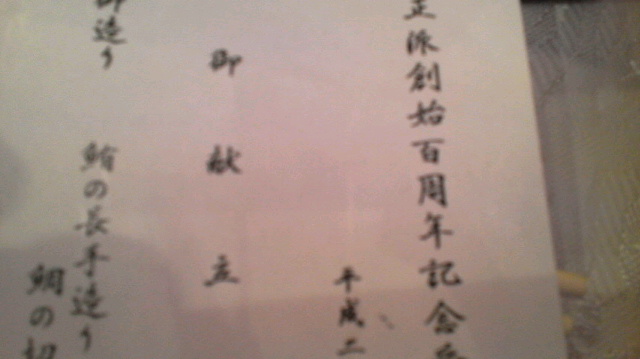 正派創始百周年記念
平成二
御献立
御造り
鮪の長手造り
鯛の切